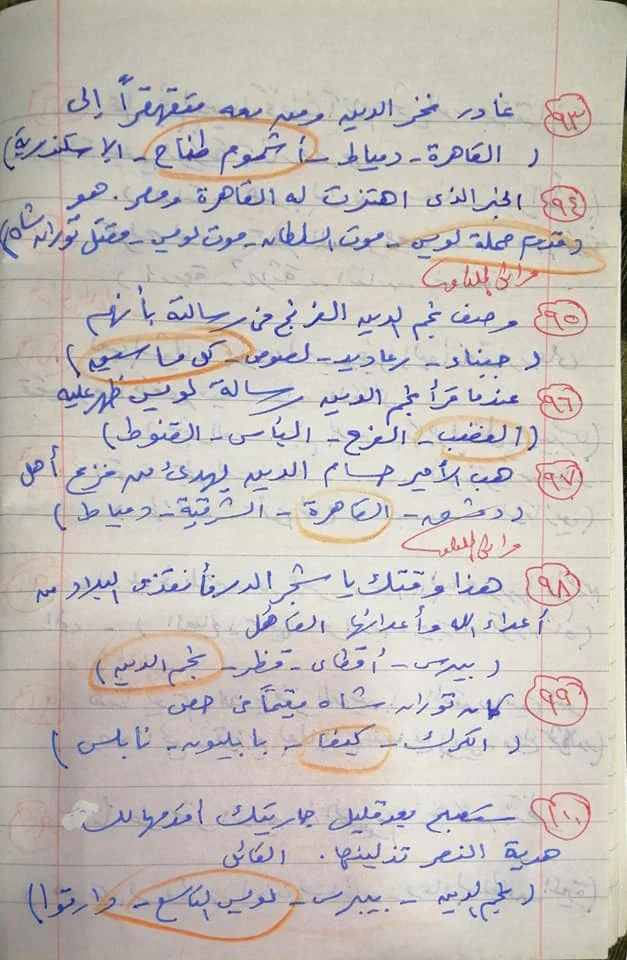 ٩٣ غادر فخر الدين ومن معه متقهقراً إلى
( القاهرة - دمياط - أشموم طناح - الإسكندرية)
٩٤ الخبر الذى اهتزت له القاهرة ومصر. هو
(قدوم حملة لويس - موت السلطان - موت لويس - مقتل توران شاه)
٩٥ وصف نجم الدين الفرنج فى رسالته بأنهم
( جبناء - رعاديد - لصوص - كل ما سبق )
٩٦ عندما قرأ نجم الدين رسالة لويس ظهر عليه
( الغضب - الفرح - اليأس - القنوط )
٩٧ هب الأمير حسام الدين يهدئ من فزع أهل
( دمشق - القاهرة - الشرقية - دمياط )
٩٨ هذا وقتك يا شجر الدر فأنقذى البلاد من
أعداء الله وأعدائها القائل
( بيبرس - أقطاى - قطز - نجم الدين )
٩٩ كان توران شاه مقيماً فى حصن
( الكرك - كيفا - بابليون - نابلس )
١٠٠ ستصبح بعد قليل جاريتك أقدمها لك
هدية النصر تذلينها. القائل
( نجم الدين - بيبرس - لويس التاسع - وارتوا )